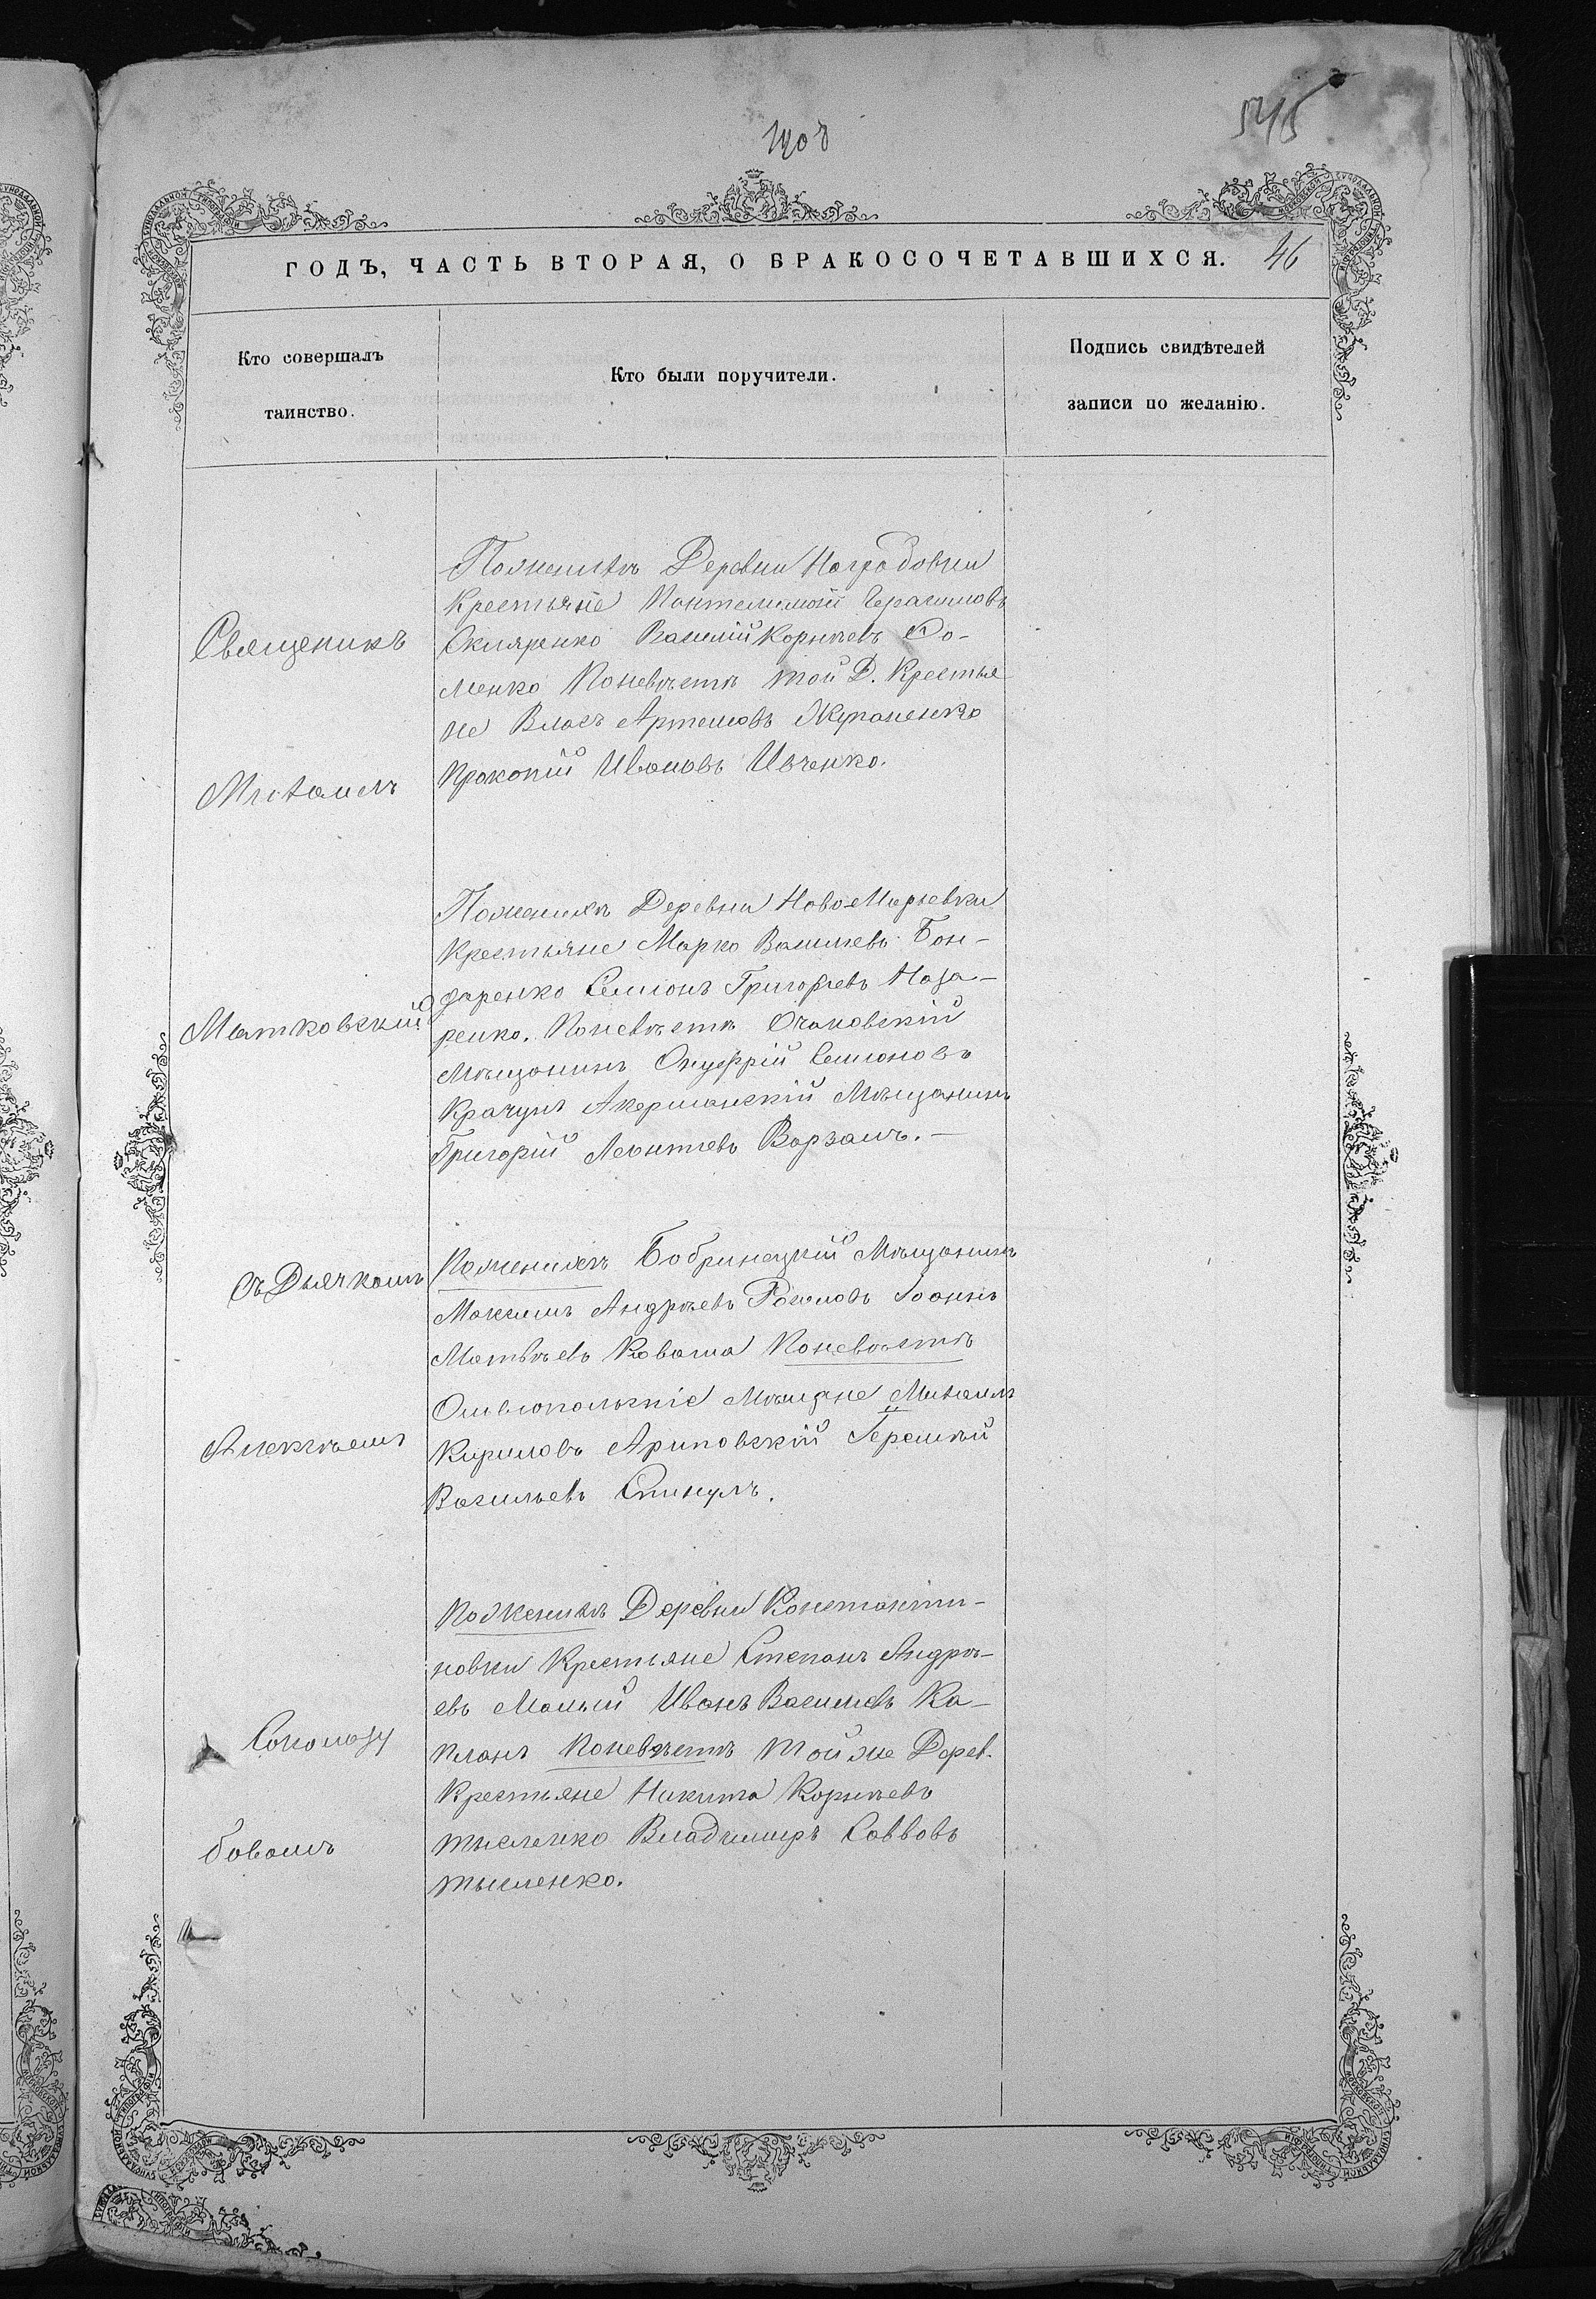 1408
545
ГОДЪ, ЧАСТЬ ВТОРАЯ, О БРАКОСОЧЕТАВШИХСЯ. 46
Кто совершалъ
таинство.
Кто были поручители.
Подпись свидѣтелей
записи по желанію.
Священикъ
Михаилъ
Матковскій
съ Дьячкомъ
Алексѣемъ
Соколо
бовымъ
По женихѣ Деревни Наградовки
Крестьяне Пантелимонъ Герасимовъ
Скляренко Василій Корнѣевъ До-
менко По невѣстѣ той Д. Крестья
не Власъ Артемовъ Жупаненко
Прокопій Ивановъ Ивченко.
По женихѣ Деревни Ново-Марьевки
Крестьяне Марко Васильевъ Бон-
даренко Семіонъ Григорьевъ Наза-
ренко. По невѣстѣ Очаковскій
Мѣщанинъ Онуфрій Семіоновъ
Крачунъ Акерманскій Мѣщанинъ
Григорій Леонтіевъ Варзанъ.—
По женихѣ Бобринецкій Мѣщанинъ
Максимъ Андрѣевъ Іоаннъ
Матвѣевъ Коваша По невѣстѣ
Ольвіопольскіе Мѣщане Михаилъ
Кириловъ Ариповскій Іеремѣй
Васильевъ Спинулъ.
По женихѣ Деревни Константи-
новки Крестьяне Степанъ Андрѣ-
евъ Малый Иванъ Васильевъ Ка-
планъ По невѣстѣ той же Дерев.
Крестьяне Никита Корнѣевъ
тысленко Владимиръ Саввовъ
тысленко.